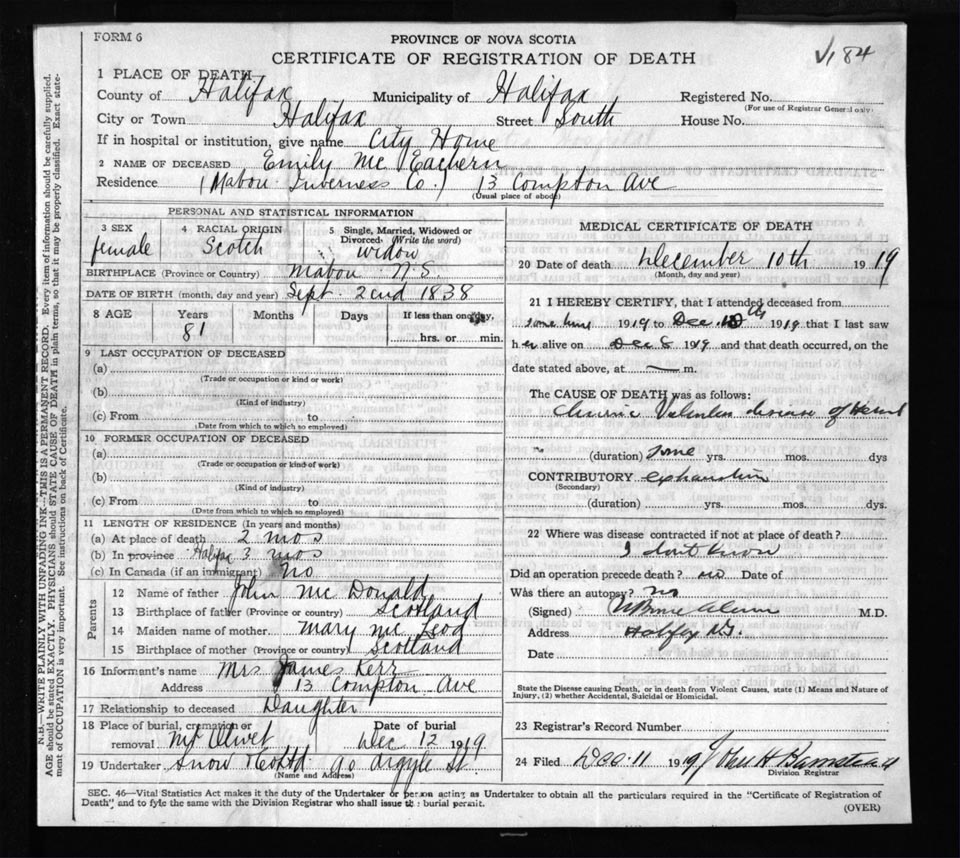 FORM 6
PROVINCE OF NOVA SCOTIA
CERTIFICATE OF REGISTRATION OF DEATH
184
1 PLACE OF DEATH
County of Halifax Municipality of Halifax Registered No.
(For use of Registrar General only)
City or Town Halifax Street South House No.
If in hospital or institution, give name City Home
2 NAME OF DECEASED Emily Mc Eachern
Residence (Mabou Inverness Co.) 13 Compton Ave
(Usual place of abode)
PERSONAL AND STATISTICAL INFORMATION
3 SEX 4 RACIAL ORIGIN 5 Single, Married, Widowed or
Divorced (Write the word)
female Scotch widow
BIRTHPLACE (Province or Country) Mabou N.S.
DATE OF BIRTH (month, day and year) Sept. 2nd 1838
8 AGE Years Months Days If less than one day,
81 hrs. or min.
9 LAST OCCUPATION OF DECEASED
(a)
(Trade or occupation or kind or work)
(b)
(Kind of industry)
(c) From to
(Date from which to which so employed)
10 FORMER OCCUPATION OF DECEASED
(a)
(Trade or occupation or kind of work)
(b)
(Kind of industry)
(c) From to
(Date from which to which so employed)
11 LENGTH OF RESIDENCE (In years and months)
(a) At place of death 2 mos
(b) In province Halifax 3 mos
(c) In Canada (if an immigrant) No
Parents
12 Name of father John Mc Donald
13 Birthplace of father (Province or country) Scotland
14 Maiden name of mother Mary Mc Leod
15 Birthplace of mother (Province or country) Scotland
16 Informant's name Mrs James Kerr
Address 13 Compton Ave
17 Relationship to deceased Daughter
18 Place of burial, cremation or Date of burial
removal Mt Olivet Dec 12 1919
19 Undertaker Snow & Co Ltd. 90 Argyle St.
(Name and Address)
MEDICAL CERTIFICATE OF DEATH
20 Date of death December 10th 1919
(Month, day and year)
21 I HEREBY CERTIFY, that I attended deceased from
some time 1919 to Dec. 10th 1919 that I last saw
her alive on Dec 8 1919 and that death occurred, on the
date stated above, at m.
The CAUSE OF DEATH was as follows:
Chronic Valvular disease of Heart
(duration) some yrs. mos. dys
CONTRIBUTORY exhaustion
(Secondary)
(duration) yrs. mos. dys.
22 Where was disease contracted if not at place of death?
I don't know
Did an operation precede death? no Date of
Was there an autopsy? No
(Signed) M.D.
Address Halifax N.S.
Date
State the Disease causing Death, or in death from Violent Causes, state (1) Means and Nature of
Injury, (2) whether Accidental, Suicidal or Homicidal.
23 Registrar's Record Number
24 Filed Dec. 11 1919 John H Barnstead
Division Registrar
SEC. 46—Vital Statistics Act makes it the duty of the Undertaker or person acting as Undertaker to obtain all the particulars required in the "Certificate of Registration of
Death" and to fyle the same with the Division Registrar who shall issue the burial permit.
(OVER)
N.B.—WRITE PLAINLY WITH UNFADING INK—THIS IS A PERMANENT RECORD. Every item of information should be carefully supplied.
AGE should be stated EXACTLY. PHYSICIANS should STATE CAUSE OF DEATH in plain terms, so that it may be properly classified. Exact state-
ment of OCCUPATION is very important. See instructions on back of Certificate.